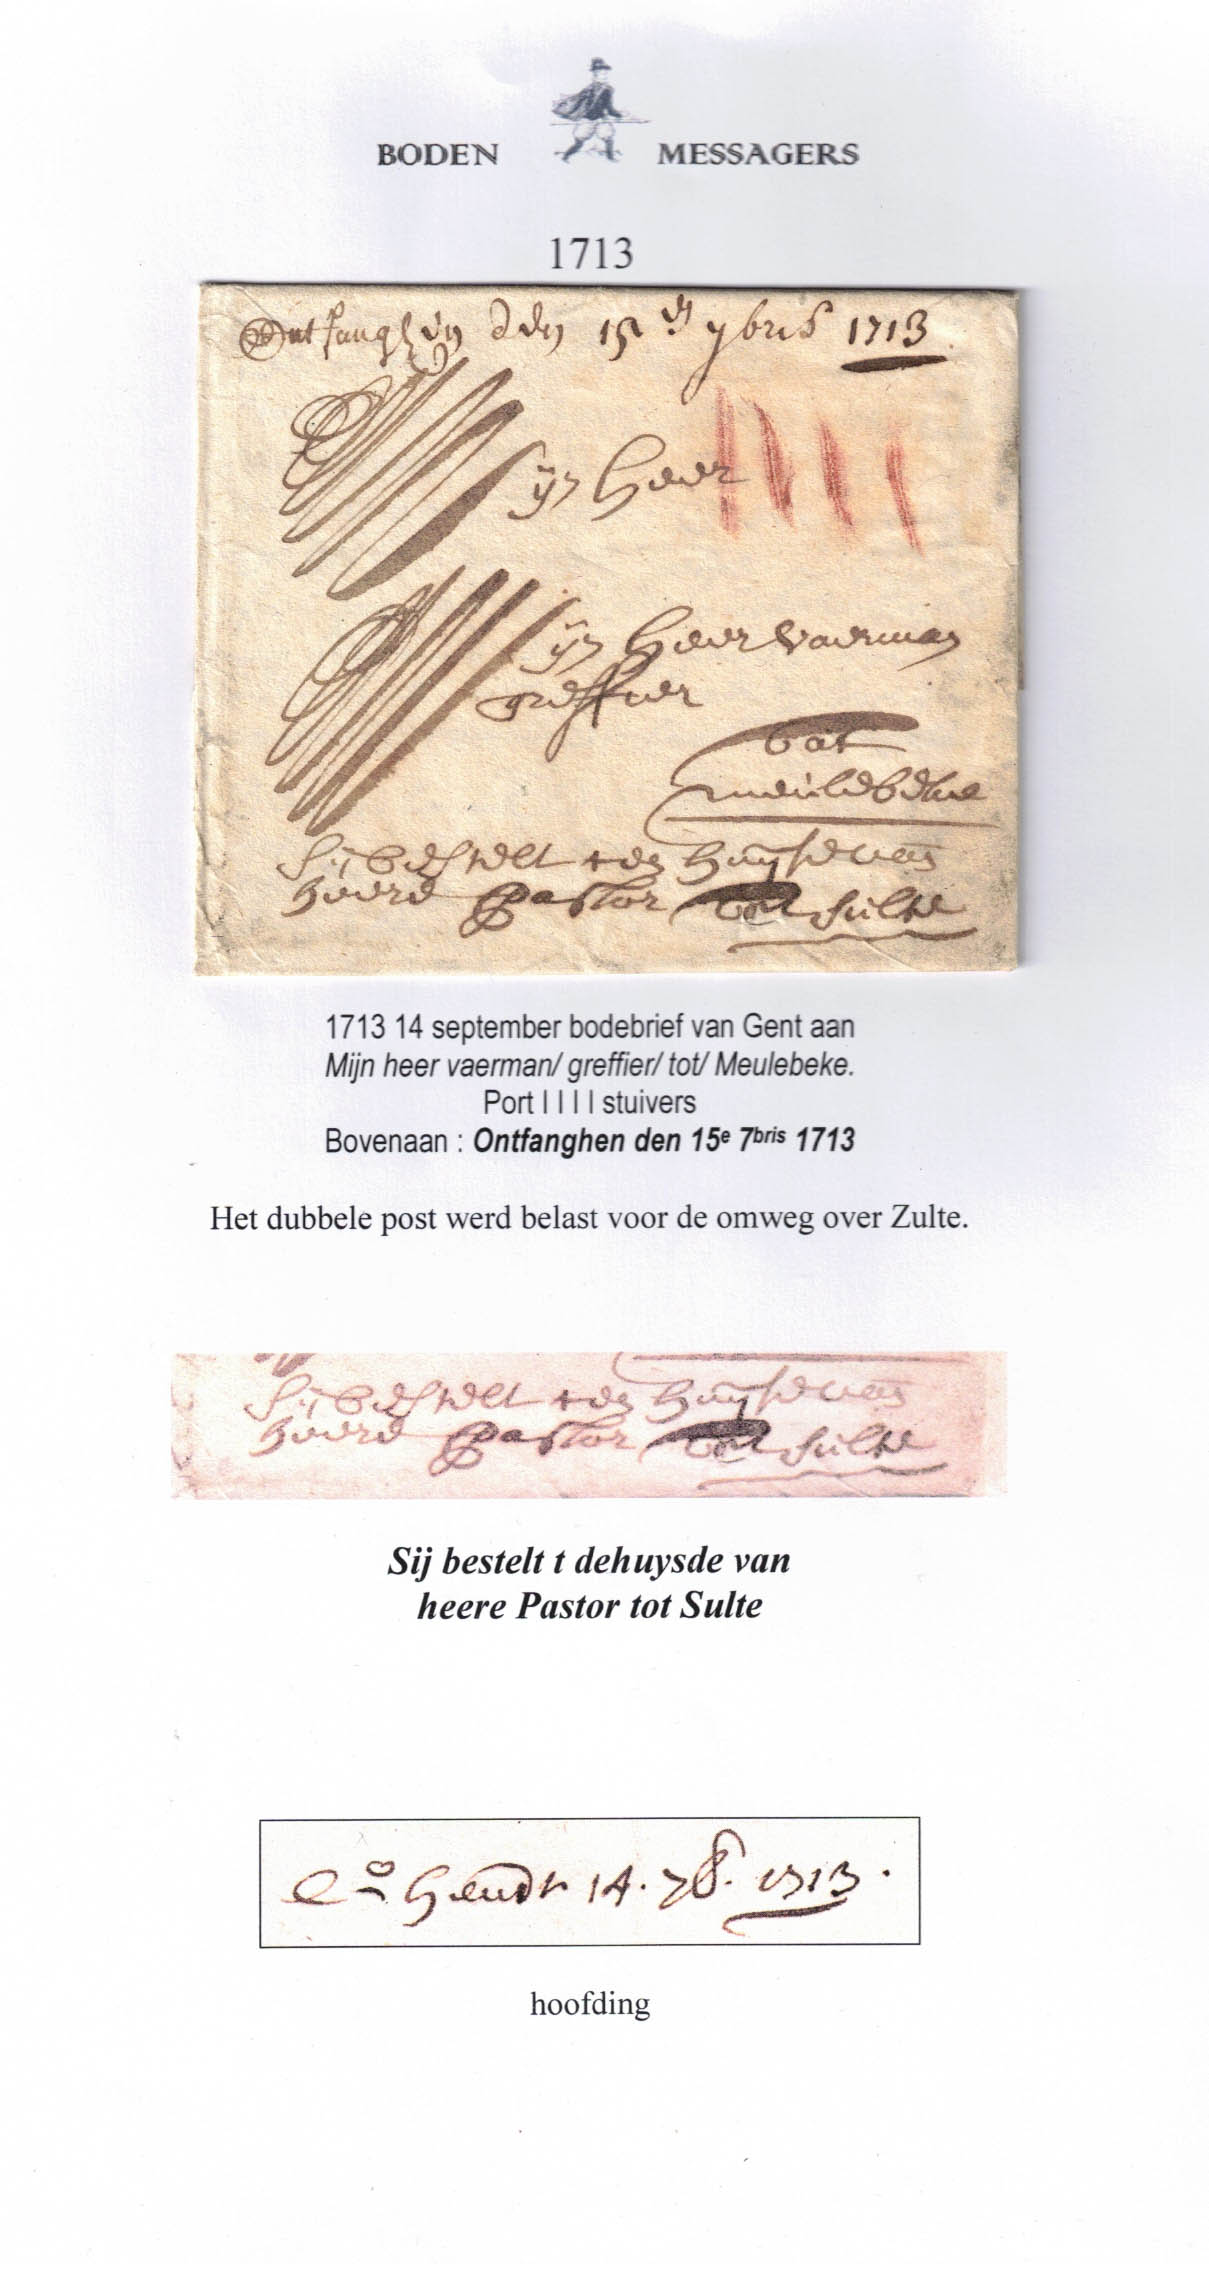 BODEN MESSAGERS
1713
Ontfanghen den 15en 7bris 1713
Mijn heer
Mijn heer vaerman
greffier
tot
meulebeke
sij bestelt ten huijse van
heere Pastor tot sulte
1713 14 september bodebrief van Gent aan
Mijn heer vaerman/ greffier/ tot/ Meulebeke.
Port I I I I stuivers
Bovenaan : Ontfanghen den 15e 7bris 1713
Het dubbele post werd belast voor de omweg over Zulte.
sij bestelt ten huijse van
heere Pastor tot sulte
Sij bestelt t dehuysde van
heere Pastor tot Sulte
Ghendt 14. 7b. 1713.
hoofding